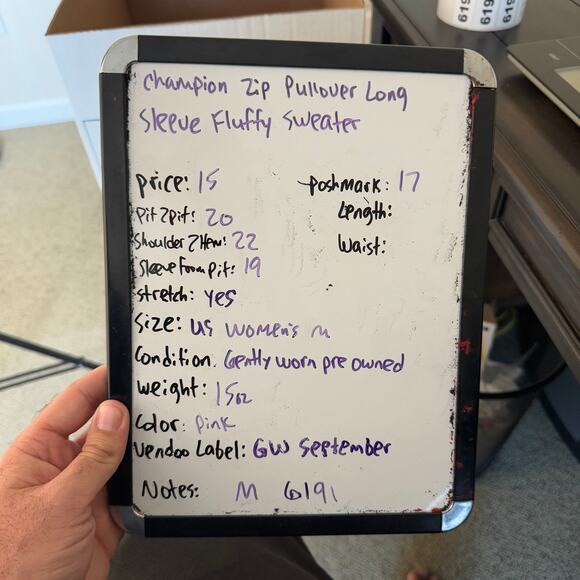 Champion Zip Pullover Long
Sleeve Fluffy Sweater
price: 15
poshmark: 17
Pit2pit: 20
Length:
Shoulder2Hem: 22
Waist:
Sleeve From pit: 19
stretch: yes
Size: US Women's M
Condition. Gently worn pre owned
weight: 15oz
Color: Pink
Vendoo Label: GW September
Notes: M 6191
619
619
619